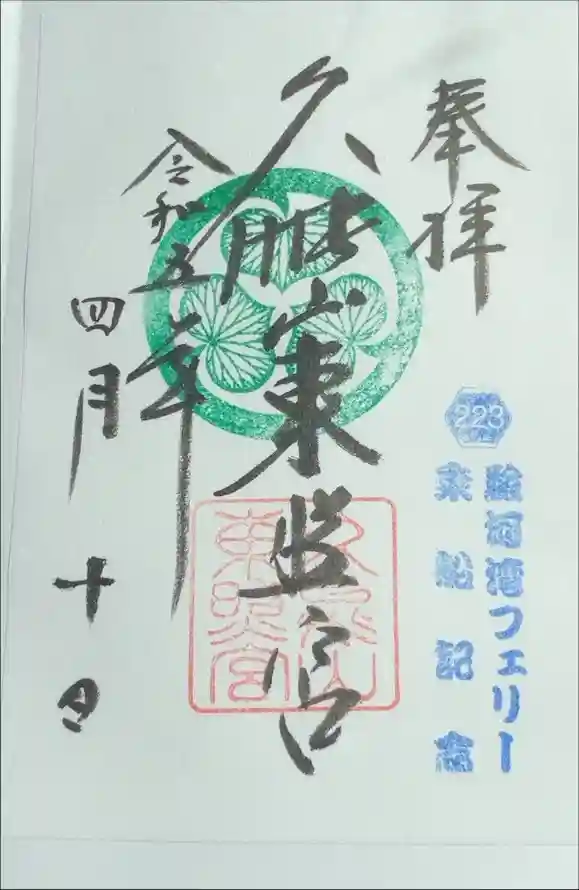 奉拝
223
駿河湾フェリー
乗船記念
久能山東照宮
久能山
東照宮
令和五年
四月十日